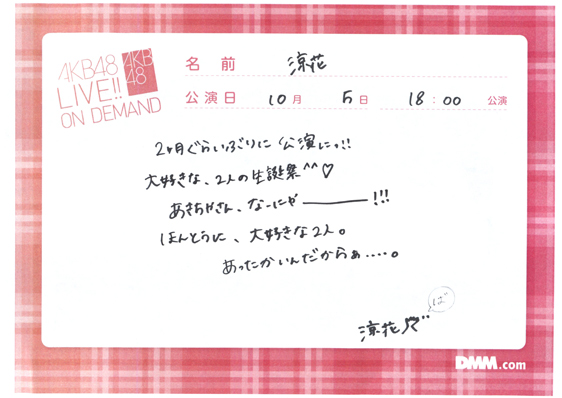 AKB48
LIVE!!
ON DEMAND
AKB
48
名前 涼花
公演日 10月 5日 18:00 公演
2ヶ月ぐらいぶりに公演にっ!!
大好きな、2人の生誕祭^^♡
あきちゃさん、なーにゃ———!!!
ほんとうに、大好きな2人。
あったかいんだからぁ....。
ば
涼花
DMM.com